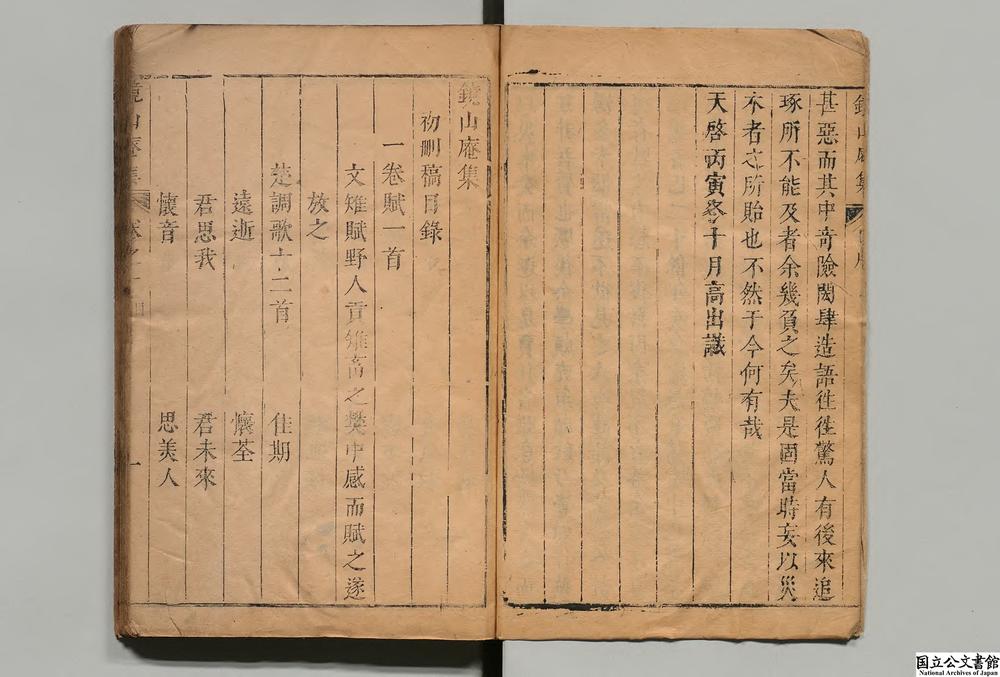 甚惡而其中奇險閎肆造語往往驚人有後來追
琢所不能及者余幾負之矣夫是固當時妄以災
木者之所貽也不然于今何有哉
天啓丙寅冬十月高出識
鏡山庵集
初刪稿目錄
一卷賦一首
文雉賦野人貢雉畜之樊中感而賦之遂
放之
楚調歌十二首
佳期
遠逝
懷荃
君思我
君未來
懷音
思美人
鏡山庵集
一
国立公文書館
National Archives of Japan